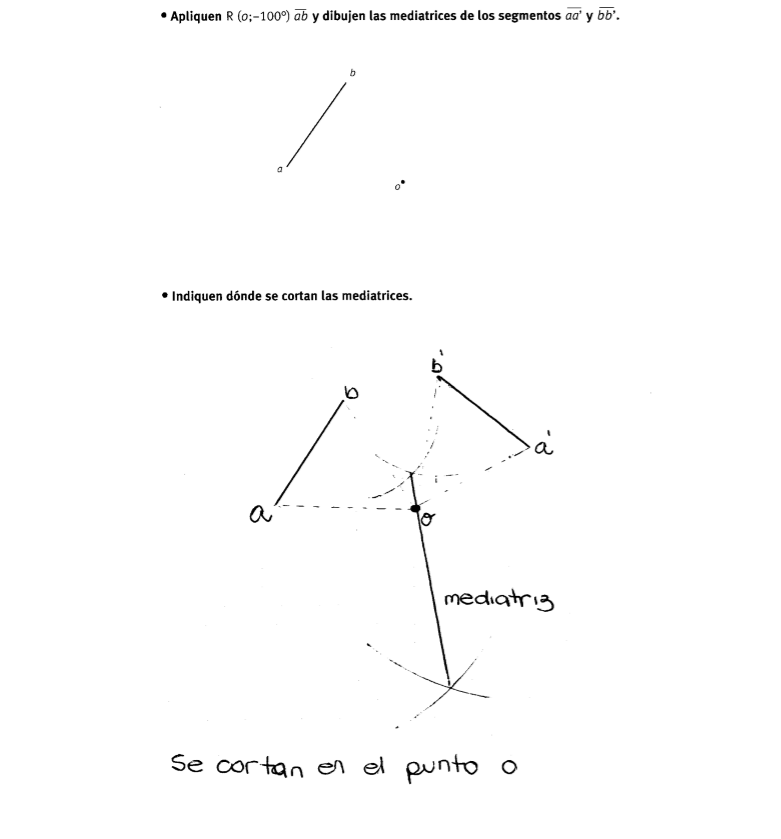 • Apliquen R (o;–100º) ab y dibujen las mediatrices de los segmentos aa' y bb'.
b
a
o
• Indiquen dónde se cortan las mediatrices.
b'
b
a'
a
o
mediatriz
Se cortan en el punto o